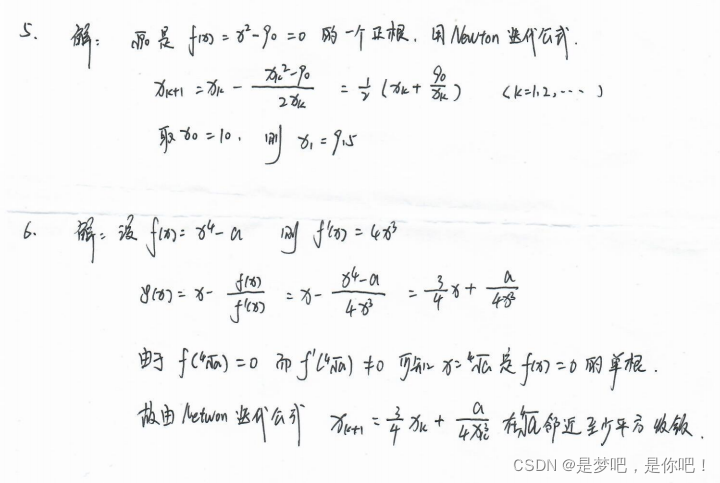 5. 解: √90 是 f(x) = x²-90 = 0 的一个正根. 用 Newton 迭代公式.
x_{k+1} = x_k - \frac{x_k²-90}{2x_k} = \frac{1}{2} (x_k + \frac{90}{x_k}) (k=1,2,⋯)
取 x₀ = 10. 则 x₁ = 9.5
6. 解: 设 f(x) = x⁴-a 则 f'(x) = 4x³
φ(x) = x - \frac{f(x)}{f'(x)} = x - \frac{x⁴-a}{4x³} = \frac{3}{4}x + \frac{a}{4x³}
由于 f(⁴√a) = 0 而 f'(⁴√a) ≠ 0 可知 x = ⁴√a 是 f(x) = 0 的单根.
故由 Netwon 迭代公式 x_{k+1} = \frac{3}{4}x_k + \frac{a}{4x_k³} 在 ⁴√a 邻近至少平方收敛.
CSDN @是梦吧，是你吧！